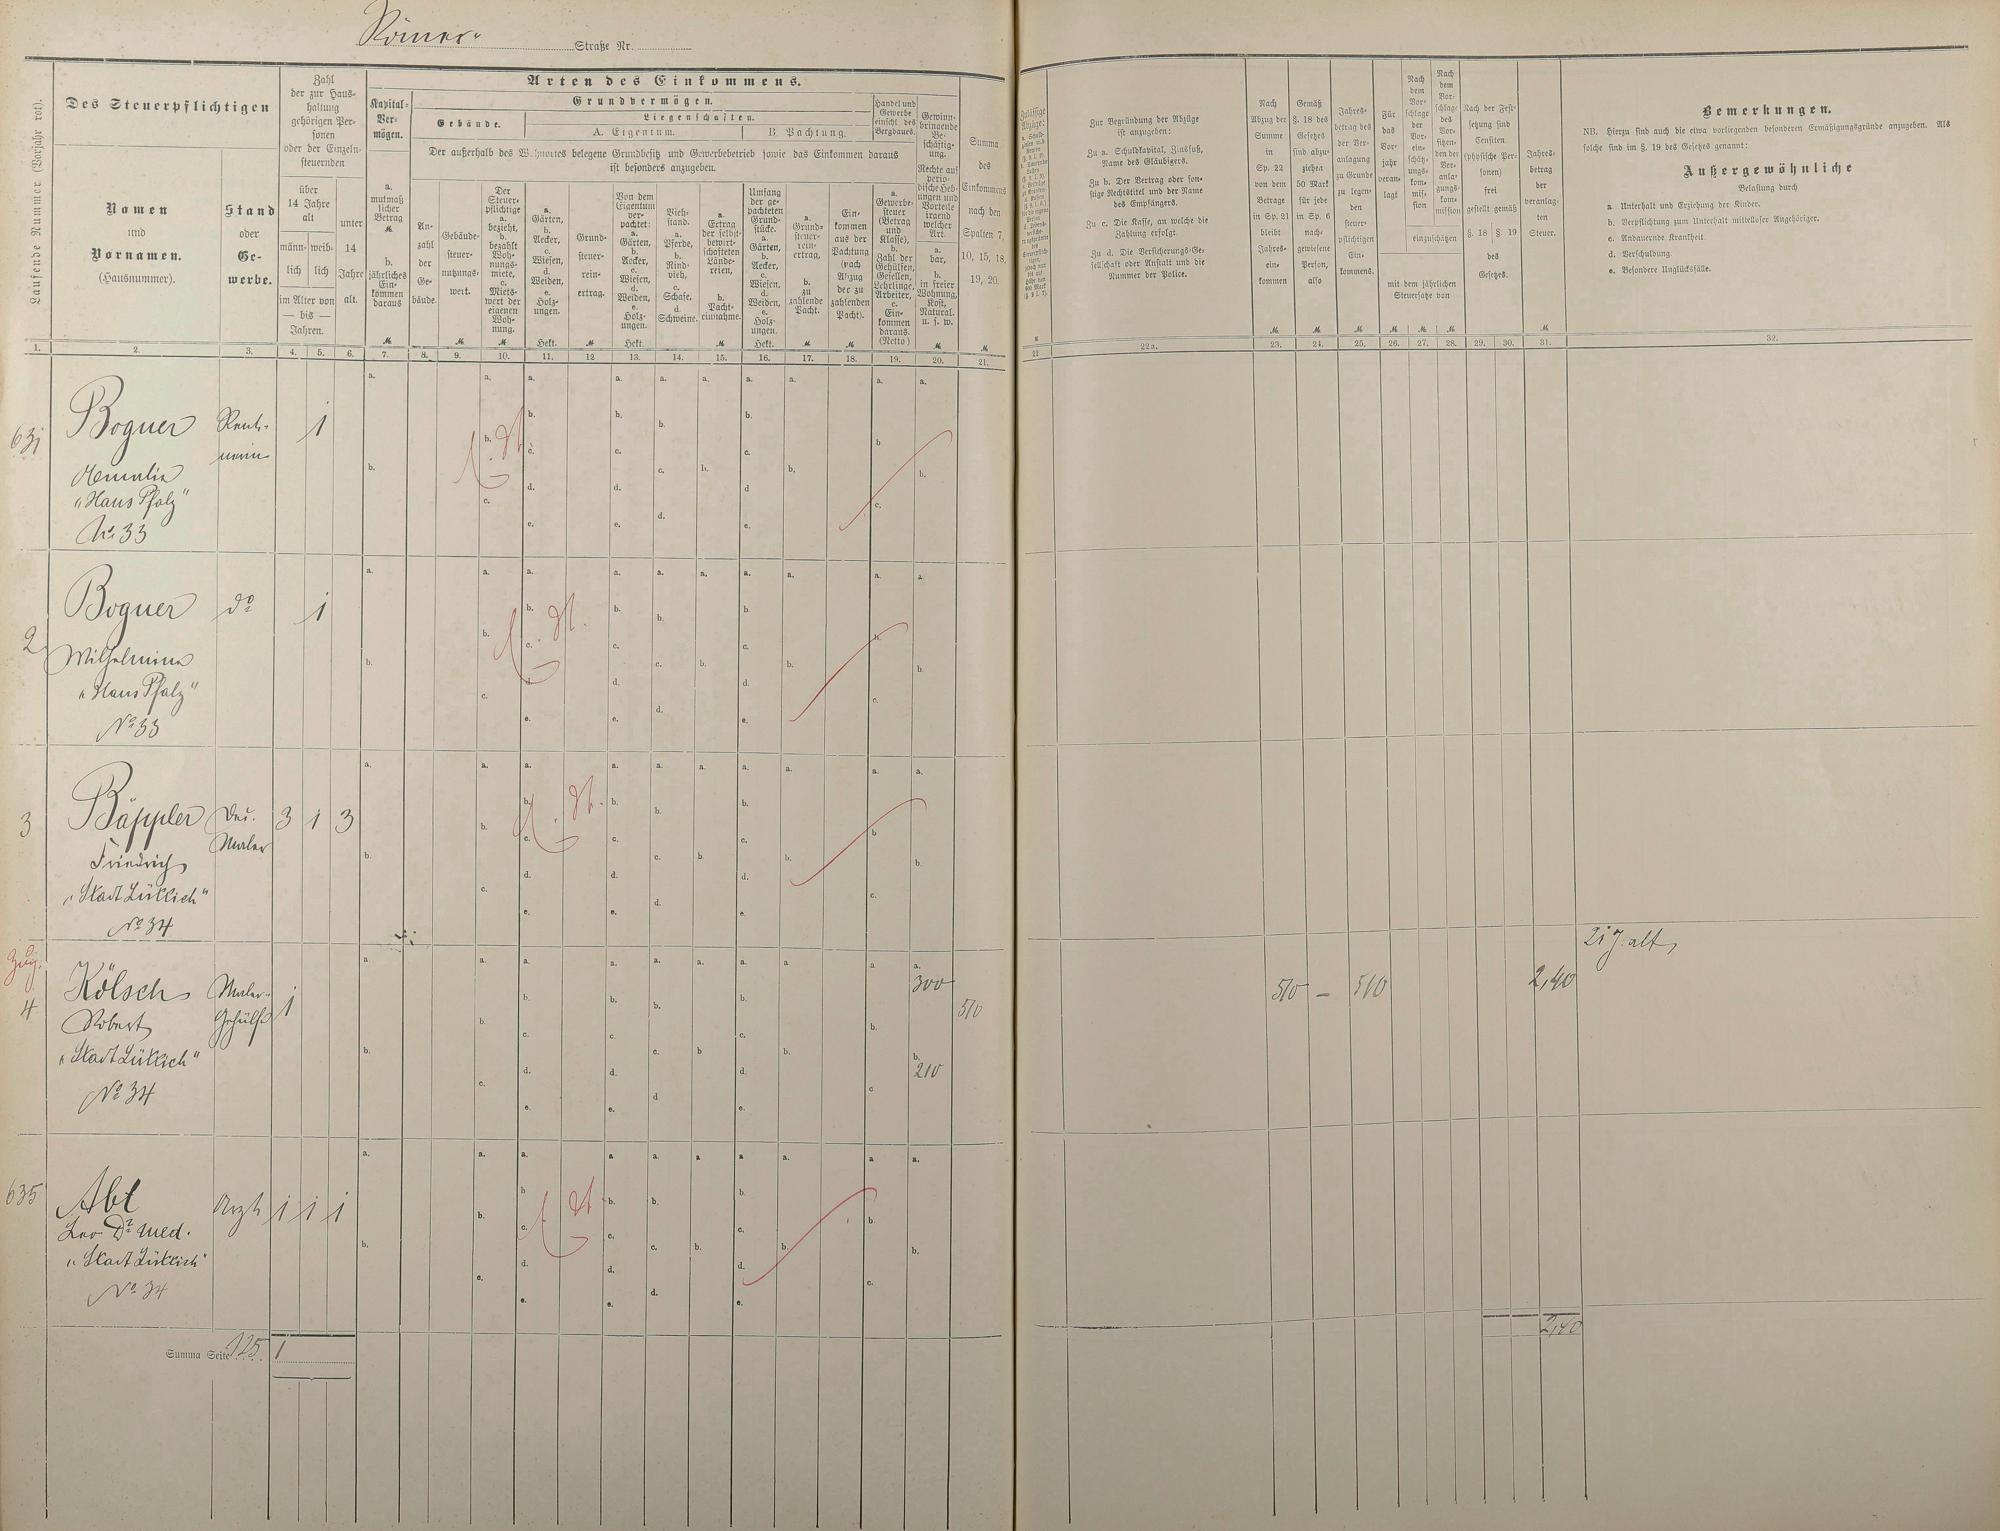 Römer- Straße Nr.
Laufende Nummer (Vorjahr rot).
Des Steuerpflichtigen
Namen
und
Vornamen.
(Hausnummer).
Stand
oder
Ge-
werbe.
Zahl
der zur Haus-
haltung
gehörigen Per-
sonen
oder der Einzeln-
steuernden
über
14 Jahre
alt
männ-
lich
weib-
lich
im Alter von
— bis —
Jahren.
unter
14
Jahre
alt.
Arten des Einkommens.
Kapital-
Ver-
mögen.
a.
mutmaß-
licher
Betrag
b.
jährliches
Ein-
kommen
daraus
Grundvermögen.
Gebäude.
Liegenschaften.
A. Eigentum.
B. Pachtung.
Der außerhalb des Wohnortes belegene Grundbesitz und Gewerbebetrieb sowie das Einkommen daraus
ist besonders anzugeben.
An-
zahl
der
Ge-
bäude.
Gebäude-
steuer-
nutzungs-
wert.
Der
Steuer-
pflichtige
a.
bezieht,
b.
bezahlt
Woh-
nungs-
miete,
c.
Miets-
wert der
eigenen
Woh-
nung.
a.
Gärten,
b.
Aecker,
c.
Wiesen,
d.
Weiden,
e.
Holz-
ungen.
Hekt.
Grund-
steuer-
rein-
ertrag.
Von dem
Eigentum
ver-
pachtet:
a.
Gärten,
b.
Aecker,
c.
Wiesen,
d.
Weiden,
e.
Holz-
ungen.
Hekt.
Vieh-
stand.
a.
Pferde,
b.
Rind-
vieh,
c.
Schafe,
d.
Schweine.
a.
Ertrag
der selbst-
bewirt-
schafteten
Lände-
reien,
b.
Pacht-
einnahme.
Umfang
der ge-
pachteten
Grund-
stücke.
a.
Gärten,
b.
Aecker,
c.
Wiesen,
d.
Weiden,
e.
Holz-
ungen.
Hekt.
a.
Grund-
steuer-
rein-
ertrag,
b.
zu
zahlende
Pacht.
Ein-
kommen
aus der
Pachtung
(nach
Abzug
der zu
zahlenden
Pacht).
Handel und
Gewerbe
einschl. des
Bergbaues.
a.
Gewerbe-
steuer
(Betrag
und
Klasse),
b.
Zahl der
Gehülfen,
Gesellen,
Lehrlinge,
Arbeiter,
c.
Ein-
kommen
daraus.
(Netto)
Gewinn-
bringende
Be-
schäftig-
ung.
Rechte auf
perio-
dische Heb-
ungen und
Vorteile
irgend
welcher
Art.
a.
bar,
b.
in freier
Wohnung,
Kost,
Natural.
u. s. w.
Summa
des
Einkommens
nach den
Spalten 7,
10, 15, 18,
19, 20.
Zur Begründung der Abzüge
ist anzugeben:
Zu a. Schuldkapital, Zinsfuß,
Name des Gläubigers.
Zu b. Der Vertrag oder son-
stige Rechtstitel und der Name
des Empfängers.
Zu c. Die Kasse, an welche die
Zahlung erfolgt.
Zu d. Die Versicherungs-Ge-
sellschaft oder Anstalt und die
Nummer der Police.
Nach
Abzug der
Summe
in
Sp. 22
von dem
Betrage
in Sp. 21
bleibt
Jahres-
ein-
kommen
Gemäß
§. 18 des
Gesetzes
sind abzu-
ziehen
50 Mark
für jede
in Sp. 6
nach-
gewiesene
Person,
also
Jahres-
betrag des
der Ver-
anlagung
zu Grunde
zu legen-
den
steuer-
pflichtigen
Ein-
kommens.
Für
das
Vor-
jahr
veran-
lagt
Nach
dem
Vor-
schlage
der
Vor-
ein-
schätz-
ungs-
kom-
mis-
sion
Nach
dem
Vor-
schlage
des
Vor-
sitzen-
den der
Ver-
anla-
gungs-
kom-
mission
einzuschätzen
mit dem jährlichen
Steuersatze von
Nach der Fest-
setzung sind
Censiten
(physische Per-
sonen)
frei
gestellt gemäß
§. 18 § 19
des
Gesetzes.
Jahres-
betrag
der
veranlag-
ten
Steuer.
Bemerkungen.
NB. Hierzu sind auch die etwa vorliegenden besonderen Ermäßigungsgründe anzugeben. Als
solche sind im §. 19 des Gesetzes genannt:
Außergewöhnliche
Belastung durch
a. Unterhalt und Erziehung der Kinder.
b. Verpflichtung zum Unterhalt mittelloser Angehöriger.
c. Andauernde Krankheit
d. Verschuldung.
e. Besondere Unglücksfälle.
1. 2. 3. 4. 5. 6. 7. 8. 9. 10. 11. 12 13. 14. 15. 16. 17. 18. 19. 20. 21. 22 22a. 23. 24. 25. 26. 27. 28. 29. 30. 31. 32.
631 Bogner Rent- 1
nerin
Amalia
"Haus Pfalz"
No 33
2 Bogner do 1
Wilhelmina
"Haus Pfalz"
No 33
3 Bäppler Dec. 3 1 3
Maler
Friedrich
"Stadt Lüttich"
No 34
Zug. 21 J. alt
4 Kölsch Maler- 1 300 510 510 – 510 2,40
Robert Gehülfe
"Stadt Lüttich" 210
No 34
635 Abt Arzt 1 1 1
Leo Dr med.
"Stadt Lüttich"
No 34
2,40
Summa Seite 125. 1